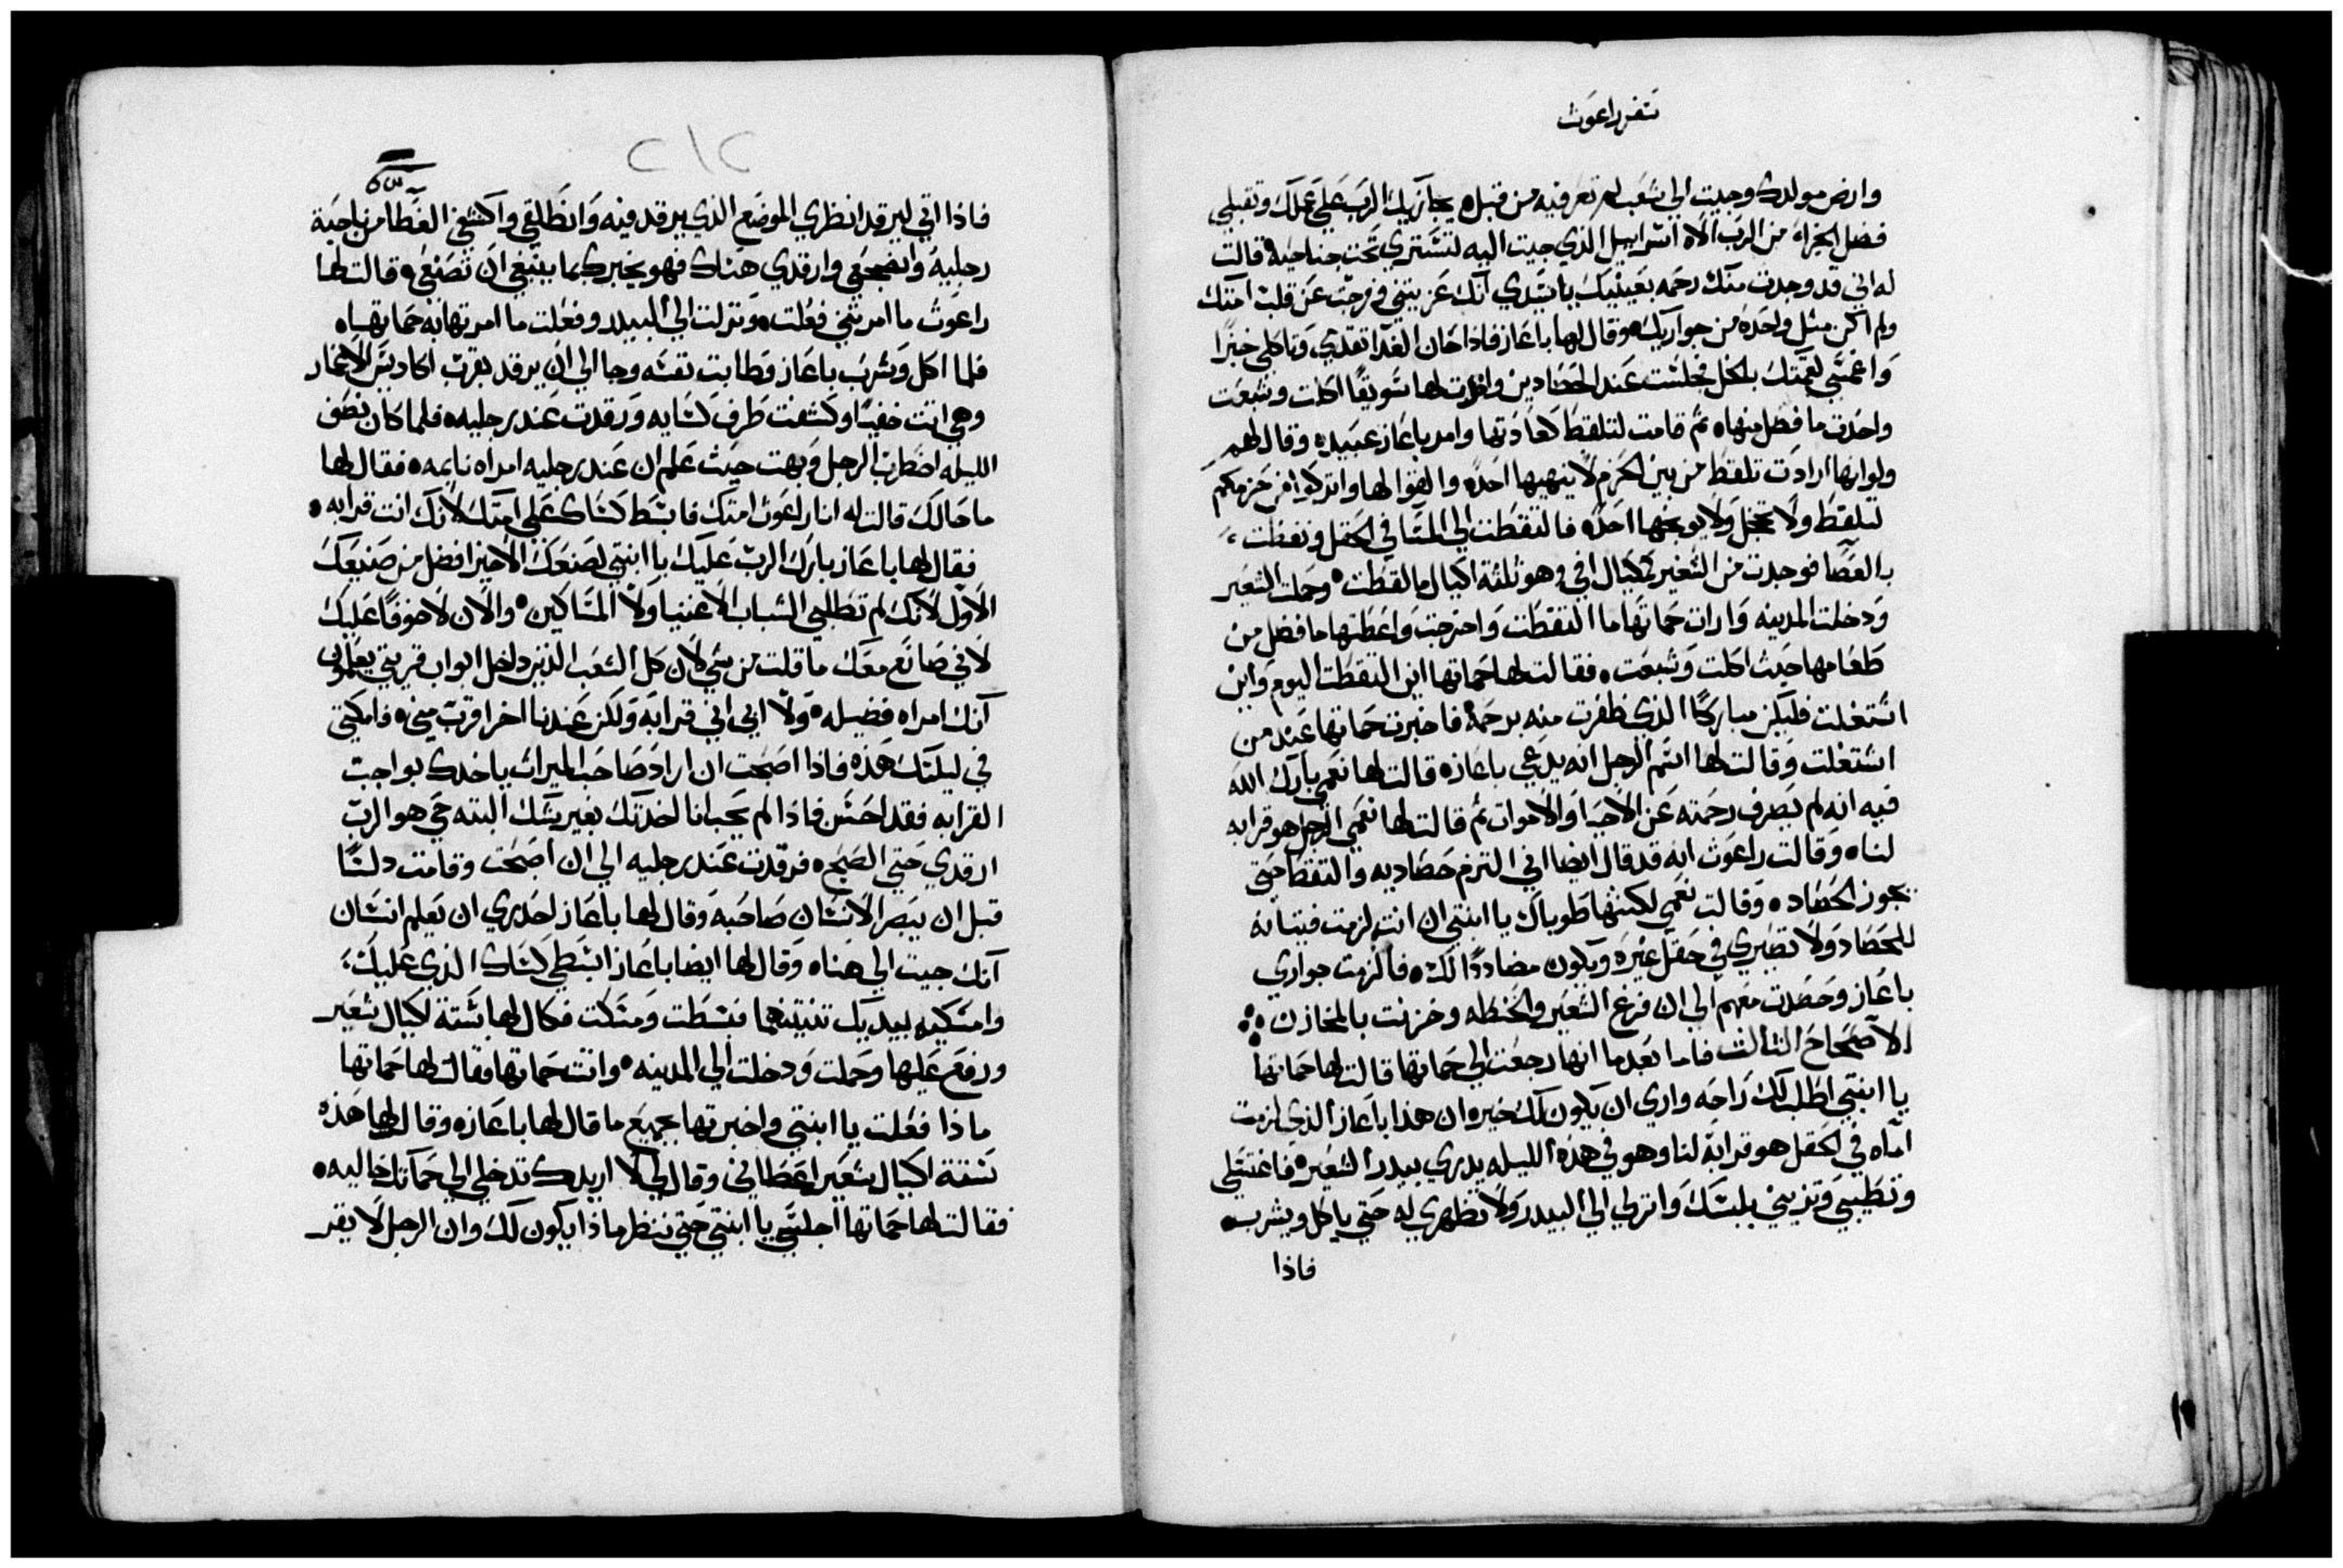 سفر راعوث
وارض مولدك وجيت الي شعب لم تعرفيه من قبل ه يجازيك الرب علي عملك وتقبلي
فضل الجزاء من الرب الاه اسراييل الذي جيت اليه لتستتري تحت جناحيه قالت
له اني قد وجدت منك رحمه بعينيك ياسيدي انك عزيتني وفرجت عن قلب امتك
ولم اكن مثل واحده من جواريك ه وقال لها باعاز فاذا حان الغدا تقدمي وتاكلي خبزا
واغمسي لقمتك بالخل فجلست عند الحصادين وافرت لها سويقا اكلت وشبعت
واخدت ما فضل منها ه ثم قامت لتلقط كعادتها وامر باعاز عبيده وقال لهم
ولو انها ارادت تلقط من بين الحزم لا ينهيها احد ه والقوا لها واتركوا من حزمكم
لتلقط ولا تخجل ولا يوبخها احد ه فالتقطت الي المسا في الحقل ونفظت
بالعصا فوجدت من الشعير كيال افي وهو ثلثة اكيال ما لقطت وحملت الشعير
ودخلت المدينه وارات حماتها ما التقطت واخرجت واعطتها ما فضل من
طعامها حيث اكلت وشبعت ه فقالت لها حماتها اين التقطت اليوم واين
اشتغلت فليكن مباركا الذي ظفرت منه برحمه فاخبرت حماتها عند من
اشتغلت وقالت لها اسم الرجل انه يدعي باعاز ه قالت لها نعمي بارك الله
فيه انه لم يصرف رحمته عن الاحيا والاموات ثم قالت لها نعمي الرجل هو قرابه
لنا ه وقالت راعوث انه قد قال ايضا اني التزم حصاديه والتقط حتي
يجوز الحصاد ه وقالت نعمي لكنتها طوباك يا ابنتي ان انت لزمت فتياته
للحصاد ولا تصيري في حقل غيره ويكون مضاددا لك ه فالزمت جواري
باعاز وحصدت معهم الي ان فرغ الشعير والحنطه وخزنت بالمخازن
الاصحاح الثالث فاما بعد ما انها رجعت الي حماتها قالت لها حماتها
يا ابنتي اطلب لك راحه واري ان يكون لك خير ه ان هذا باعاز الذي لزمت
اماه في الحقل هو قرابة لنا وهو في هذه الليله يدري بيدر الشعير ه فاغتسلي
وتطيبي وتزيني بلبسك وانزلي الي البيدر ولا تظهري له حتي ياكل ويشرب ه
فاذا
٢١٢
فاذا اتي ليرقد انظري الموضع الذي يرقد فيه وانطلقي واكشفي الغطا من ناحية
رجليه وانضجعي وارقدي هناك فهو يخبرك بما ينبغي ان تصنعي ه قالت لها
راعوث ما امرتني فعلت ه ونزلت الي البيدر وفعلت ما امرتها به حماتها ه
فلما اكل وشرب باعاز وطابت نفسه وجا الي ان يرقد بقرب اكاديس الاغمار
وهي اتت خفيا وكشفت طرف كسايه ورقدت عند رجليه ه فلما كان نصف
الليله اضطرب الرجل وبهت حيث علم ان عند رجليه امراه نايمه ه فقال لها
ما حالك قالت له انا راعوث امتك فابسط كساك علي امتك لانك انت قرابه ه
فقال لها باعاز بارك الرب عليك يا ابنتي لصنعك الاخير افضل من صنيعك
الاول لانك لم تطلبي الشباب الاغنيا ولا المساكين والان لا خوفا عليك
لاني صانع معك ما قلت من شي لان كل الشعب الذين داخل ابواب قريتي يعلمون
انك امراه فضيله ه ولا ابي اني قرابه ولكن عندنا اخر اقرب مني ه فامكثي
في ليلتك هذه فاذا اصبحت ان اراد صاحب الميراث ياخدك بواجب
القرابه فقد احسن فاذا لم يحب انا اخدتك بغير شك البته حي هو الرب
ارقدي حتي الصبح ه فرقدت عند رجليه الي ان اصبحت وقامت دلسا
قبل ان يبصر الانسان صاحبه وقال لها باعاز احدري ان يعلم انسان
انك جيت الي هنا ه وقال لها ايضا باعاز ابسطي كساك الذي عليك
وامسكيه بيديك تنيتهما فبسطت ومسكت فكال لها ستة اكيال شعير
ورفع عليها وحملت ودخلت الي المدينه واتت حماتها فقالت لها حماتها
ماذا فعلت يا ابنتي واخبرتها بجميع ما قال لها باعاز ه وقال لها هذه
ستة اكيال شعير اعطاني وقال لي لا اريدك تدخلي الي حماتك خاليه ه
فقالت لها حماتها اجلسي يا ابنتي حتي ننظر ماذا يكون لك وان الرجل لا يقر